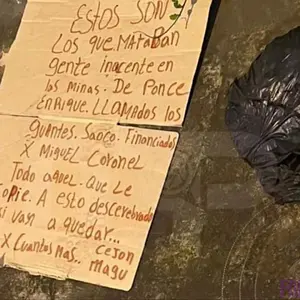 ESTOS SON
LOS QUE MATABAN
gente inocente en
las minas. De Ponce
ENRIQUE. LLAMADOS LOS
guantes. Saoco. Financiados
X MIGUEL CORONEL
Todo aquel. Que Le
copie. A esto descerebrado
si van a quedar...
X Cuantos mas.. ceson
magu